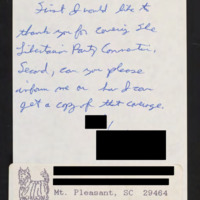 First I would like to
thank you for covering The
Libertarian Party Convention.
Second, can you please
inform me on how I can
get a copy of that coverage.
Mt. Pleasant, SC 29464